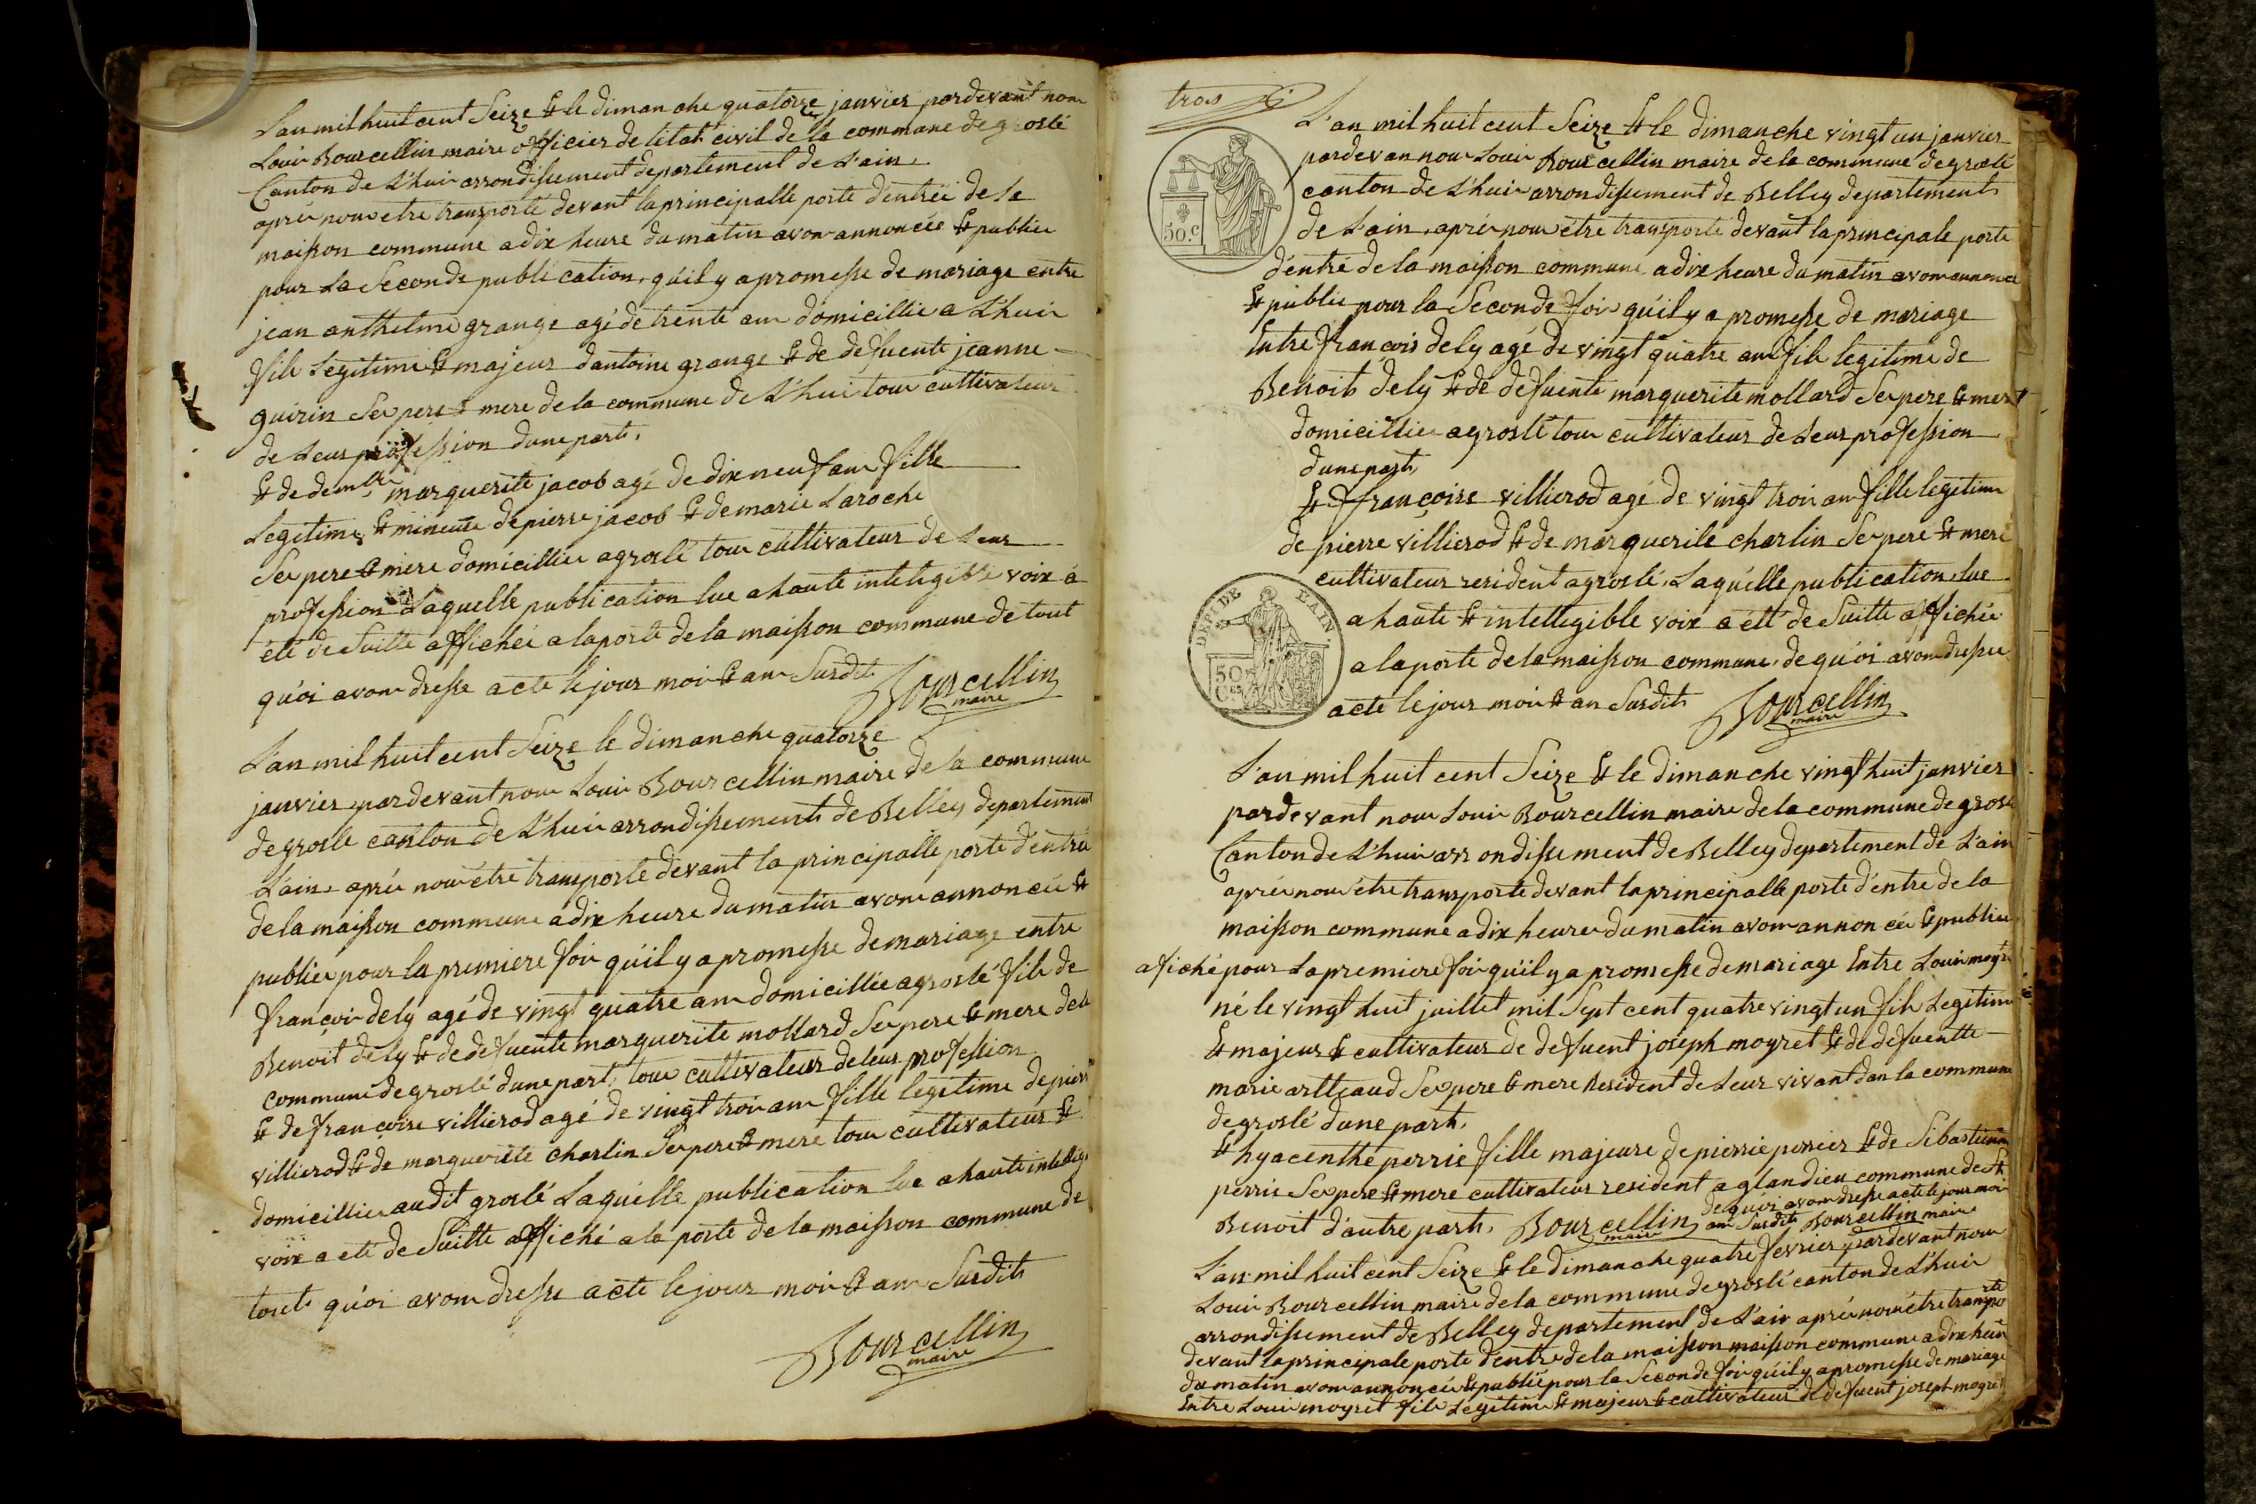 L'an mil huit cent Seize & le dimanche quatorze janvier pardevant nous
Louis Bourcellin maire officier de l'état civil de la commune de groslé
Canton de L'huis arrondissement departement de L'ain
après nous etre transporté devant la principalle porte d'entréé de la
maisson commune a dix heure du matin avons annoncée & publiée
pour La Seconde publication, qu'il y a promesse de mariage entre
jean anthelme grange agé de trente ans domicillié a L'huis
fils Legitime & majeur dantoine grange & de defuente jeanne
guirin Ses pere & mere de la commune de L'huis tous cultivateurs
de Leur profession d'une part,
& de demlle marguerite jacob agé de dix neuf ans fille
Legitime & mineure de pierre jacob & de marie Laroche
Ses pere & mere domicilliés a groslé tous cultivateurs de Leur
profession Laquelle publication lue a haute inteligible voix a
été de Suitte affichée a la porte de la maisson commune de tout
quoi avons dresse acte le jour mois & ans Susdit
Bourcellin
maire
L'an mil huit cent Seize le dimanche quatorze
janvier pardevant nous Louis Bourcellin maire de la commune
de groslé canton de L'huis arrondissement de Belley departement
L'ain après nous être transporté devant la principalle porte d'entréé
de la maisson commune a dix heure du matin avons annoncée &
publiée pour la premiere fois qu'il y a promesse de mariage entre
françois dely agé de vingt quatre ans domicillié a groslé fils de
Benoit dely & de defuente marguerite mollard Ses pere & mere de la
commune de groslé d'une part, tous cultivateurs de leur profession
& de françoise villierod agé de vingt trois ans fille legitime de pierre
villierod & de marguerite charlin Ses pere & mere tous cultivateurs &
domicilliés audit groslé Laquelle publication lue a haute intellige
voix a été de Suitte affiché a la porte de la maisson commune de
tout quoi avons dresse acte le jour mois & ans Susdit
Bourcellin
maire
trois
L'an mil huit cent Seize & le dimanche vingt un janvier
pardevan nous Louis Bourcellin maire de la commune de groslé
canton de L'huis arrondissement de Belley departement
50.c
de L'ain, après nous être transporté devant la principale porte
d'entré de la maisson commune a dix heure du matin avons annoncé
& publié pour la Seconde fois qu'il y a promesse de mariage
Entre françois dely agé de vingt quatre ans fils legitime de
Benoit dely & de defuente marguerite mollard Ses pere & mere
domicilliés a groslé tous cultivateurs de Leur profession
d'une part,
& françoise villierod agé de vingt trois ans fille legitime
de pierre villierod & de marguerite charlin Ses pere & mere
cultivateurs resident a groslé, Laquelle publication, lue
DEPT DE L'AIN.
a haute & intelligible voix a été de Suitte affichée
a la porte de la maisson commune, de quoi avons dressé
50 Ces
acte le jour mois & an Susdit
Bourcellin
maire
L'an mil huit cent Seize & le dimanche vingt huit janvier
pardevant nous Louis Bourcellin maire de la commune de grosl
Canton de L'huis arrondissement de Belley departement de L'ain
après nous être transporté devant la principalle porte d'entré de la
maisson commune a dix heures du matin avons annoncée & publiée
afiché pour La premiere fois qu'il y a promesse de mariage Entre Louis moyret
né le vingt huit juillet mil Sept cent quatre vingt un fils Legitime
& majeur & cultivateur de defuent joseph moyret & de defuentte
marie artteaud Ses pere & mere Resident de Leur vivant dans la commune
de groslé d'une part,
& hyacenthe perrie fille majeure de pierrie perrier & de Sibastienne
perrie Ses pere & mere cultivateur resident a glandieu commune de St
Benoit d'autre part, Bourcellin maire
de quoi avons dresse acte le jour mois
an Susdit Bourcellin maire
L'an mil huit cent Seize & le dimanche quatre fevrier pardevant nous
Louis Bourcellin maire de la commune de groslé canton de L'huis
arrondissement de Belley departement de L'ain après nous être transporté
devant la principale porte d'entré de la maisson maisson commune a dix heure
du matin avons annoncée & publié pour la Seconde fois qu'il y a promesse de mariage
Entre Louis moyret fils Légitime & majeur & cultivateur de defuent joseph moyret